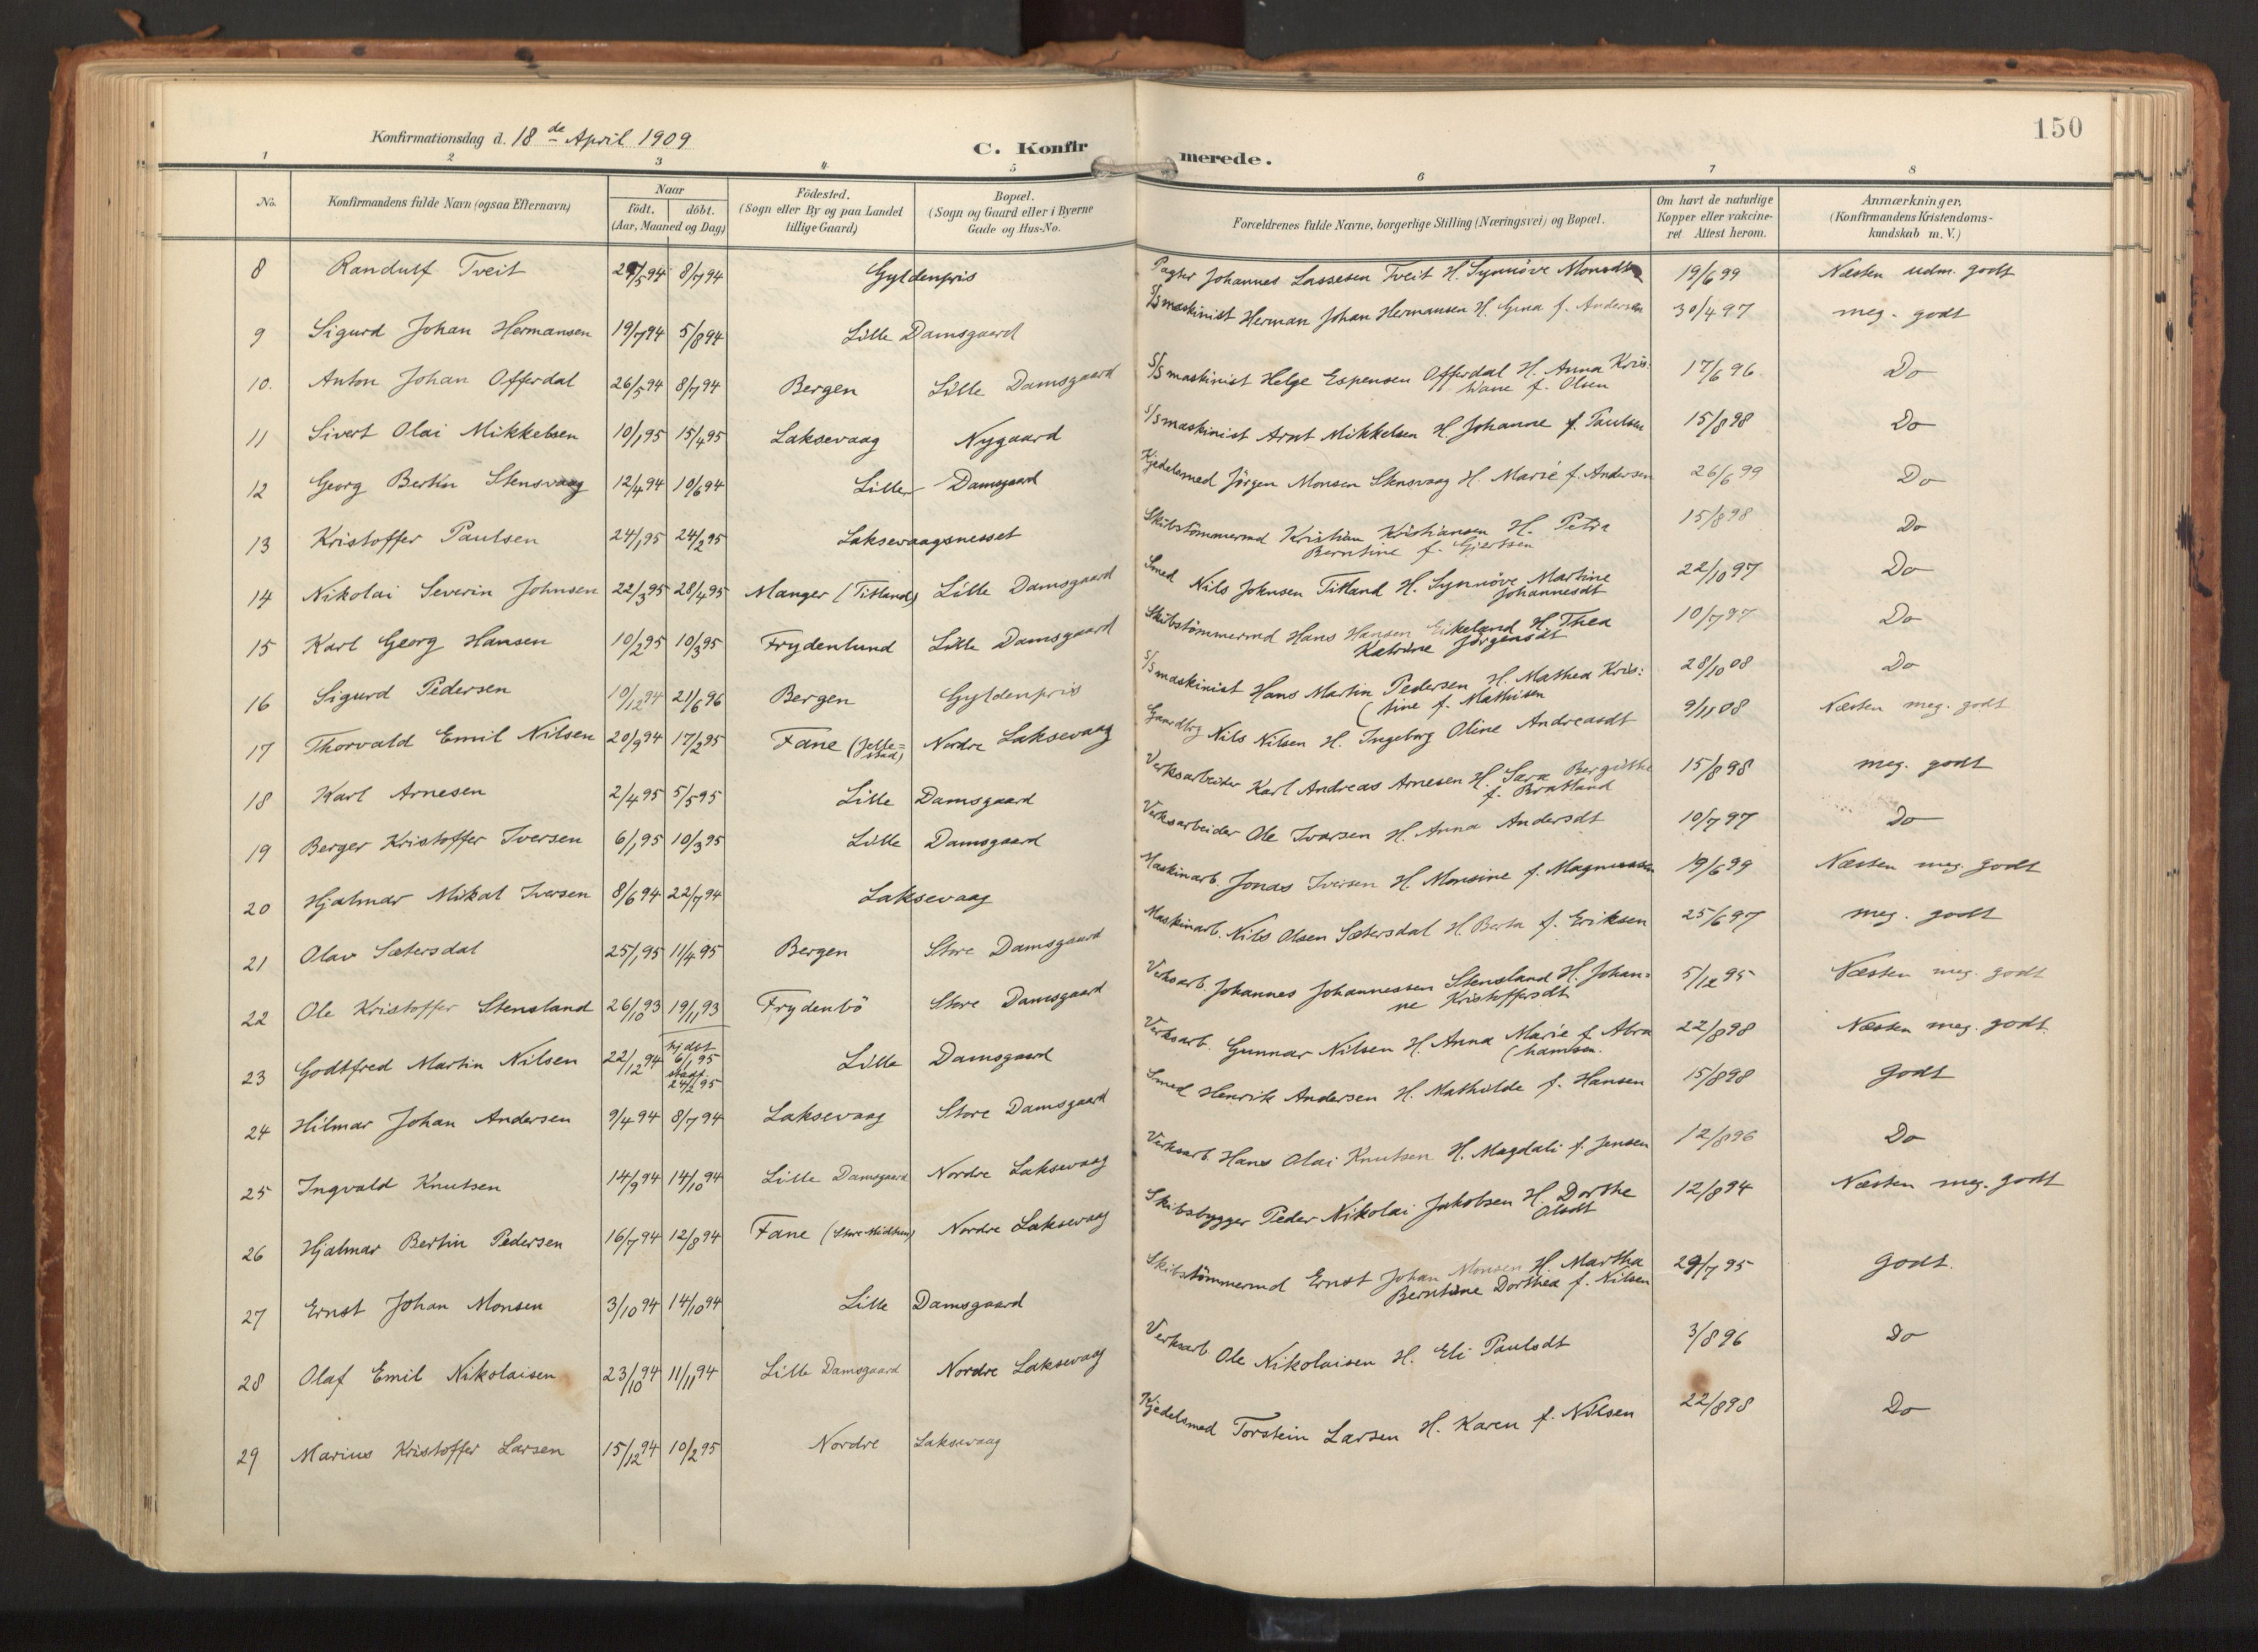 150
Konfirmationsdag d. 18de April 1909
C. Konfirmerede.
1 2 3 4 5 6 7 8
No. | Konfirmandens fulde Navn (ogsaa Efternavn) | Naar födt. döbt. (Aar, Maaned og Dag) | Födested. (Sogn eller By og paa Landet tillige Gaard) | Bopæl. (Sogn og Gaard eller i Byerne Gade og Hus-No. | Forældrenes fulde Navne, borgerlige Stilling (Næringsvei) og Bopæl. | Om havt de naturlige Kopper eller vakcineret Attest herom. | Anmærkninger. (Konfirmandens Kristendomskundskab m. V.)
8 Randulf Tveit 29/5 94 8/7 94 Gyldenpris Pagter Johannes Lassesen Tveit H. Synnöve Monsdtr 19/6 99 Næsten udm. godt
9 Sigurd Johan Hermansen 19/7 94 5/8 94 Lille Damsgaard S/S maskinist Herman Johan Hermansen H. Gina f. Andersen 30/4 97 meg. godt
10. Anton Johan Offerdal 26/5 94 8/7 94 Bergen Lille Damsgaard S/S maskinist Helge Espensen Offerdal H. Anna Kris:
tiane f. Olsen 17/6 96 Do
11 Sivert Olai Mikkelsen 10/1 95 15/4 95 Laksevaag Nygaard S/S maskinist Arnt Mikkelsen H. Johanne f. Paulsen 15/8 98 Do
12 Georg Bertin Stensvaag 12/4 94 10/6 94 Lille Damsgaard Kjedelsmed Jörgen Monsen Stensvaag H. Marie f. Andersen 26/6 99 Do
13 Kristoffer Paulsen 24/1 95 24/2 95 Laksevaagsnesset Skibstömmermd Kristian Kristiansen H. Petra
Berntine f. Gjertsen 15/8 98 Do
14 Nikolai Severin Johnsen 22/3 95 28/4 95 Manger (Titland) Lille Damsgaard Smed Nils Johnsen Titland H. Synnöve Martine
Johannesdt 22/10 97 Do
15 Karl Georg Hansen 10/2 95 10/3 95 Frydenlund Lille Damsgaard Skibstömmermd Hans Hansen Eikeland H. Thea
Katrine Jörgensdt 10/7 97 Do
16 Sigurd Pedersen 10/12 94 21/6 96 Bergen Gyldenpris S/S maskinist Hans Martin Pedersen H. Mathea Kris:
(tine f. Mathisen 28/10 08 Do
17 Thorvald Emil Nilsen 20/9 94 17/2 95 Fane (Jelle=
stad) Nordre Laksevaag Gaardbrg Nils Nilsen H. Ingeborg Oline Andreasdt 9/11 08 Næsten meg. godt
18 Karl Arnesen 2/4 95 5/5 95 Lille Damsgaard Verksarbeider Karl Andreas Arnesen H. Sara Bergithe
f. Bratland 15/8 98 meg. godt
19 Berger Kristoffer Iversen 6/1 95 10/3 95 Lille Damsgaard Verksarbeider Ole Ivarsen H. Anna Andersdt 10/7 97 Do
20 Hjalmar Mikal Iversen 8/6 94 22/7 94 Laksevaag Maskinarb. Jonas Iversen H. Monsine f. Magnussen 19/6 99 Næsten meg. godt
21 Olav Sætersdal 25/1 95 11/4 95 Bergen Store Damsgaard Maskinarb. Nils Olsen Sætersdal H. Berta f. Eriksen 25/6 97 meg. godt
22 Ole Kristoffer Stensland 26/10 93 19/11 93 Frydenbö Store Damsgaard Verksarb. Johannes Johannessen Stensland H. Johan=
ne Kristoffersdt 5/12 95 Næsten meg. godt
23 Godtfred Martin Nilsen 22/12 94 hjdbt 6/1 95
stadf. 24/2 95 Lille Damsgaard Verksarb. Gunnar Nilsen H. Anna Marie f. Abra
(hamsen. 22/8 98 Næsten meg. godt.
24 Hilmar Johan Andersen 9/4 94 8/7 94 Laksevaag Store Damsgaard Smed Henrik Andersen H. Mathilde f. Hansen 15/8 98 godt
25 Ingvald Knutsen 14/9 94 14/10 94 Lille Damsgaard Nordre Laksevaag Verksarb. Hans Olai Knutsen H. Magdali f. Jensen 12/8 96 Do
26 Hjalmar Bertin Pedersen 16/7 94 12/8 94 Fane (Store Midthun) Nordre Laksevaag Skibsbygger Peder Nikolai Jakobsen H. Dorthe
Olsdt 12/8 94 Næsten meg. godt
27 Ernst Johan Monsen 3/10 94 14/10 94 Lille Damsgaard Skibstömmermd Ernst Johan Monsen H. Martha
Berntine Dorthea f. Nilsen 29/7 95 godt.
28 Olaf Emil Nikolaisen 23/10 94 11/11 94 Lille Damsgaard Nordre Laksevaag Verksarb Ole Nikolaisen H. Eli Paulsdt 3/8 96 Do
29 Marius Kristoffer Larsen 15/12 94 10/2 95 Nordre Laksevaag Kjedelsmed Torstein Larsen H. Karen f. Nilsen 22/8 98 Do